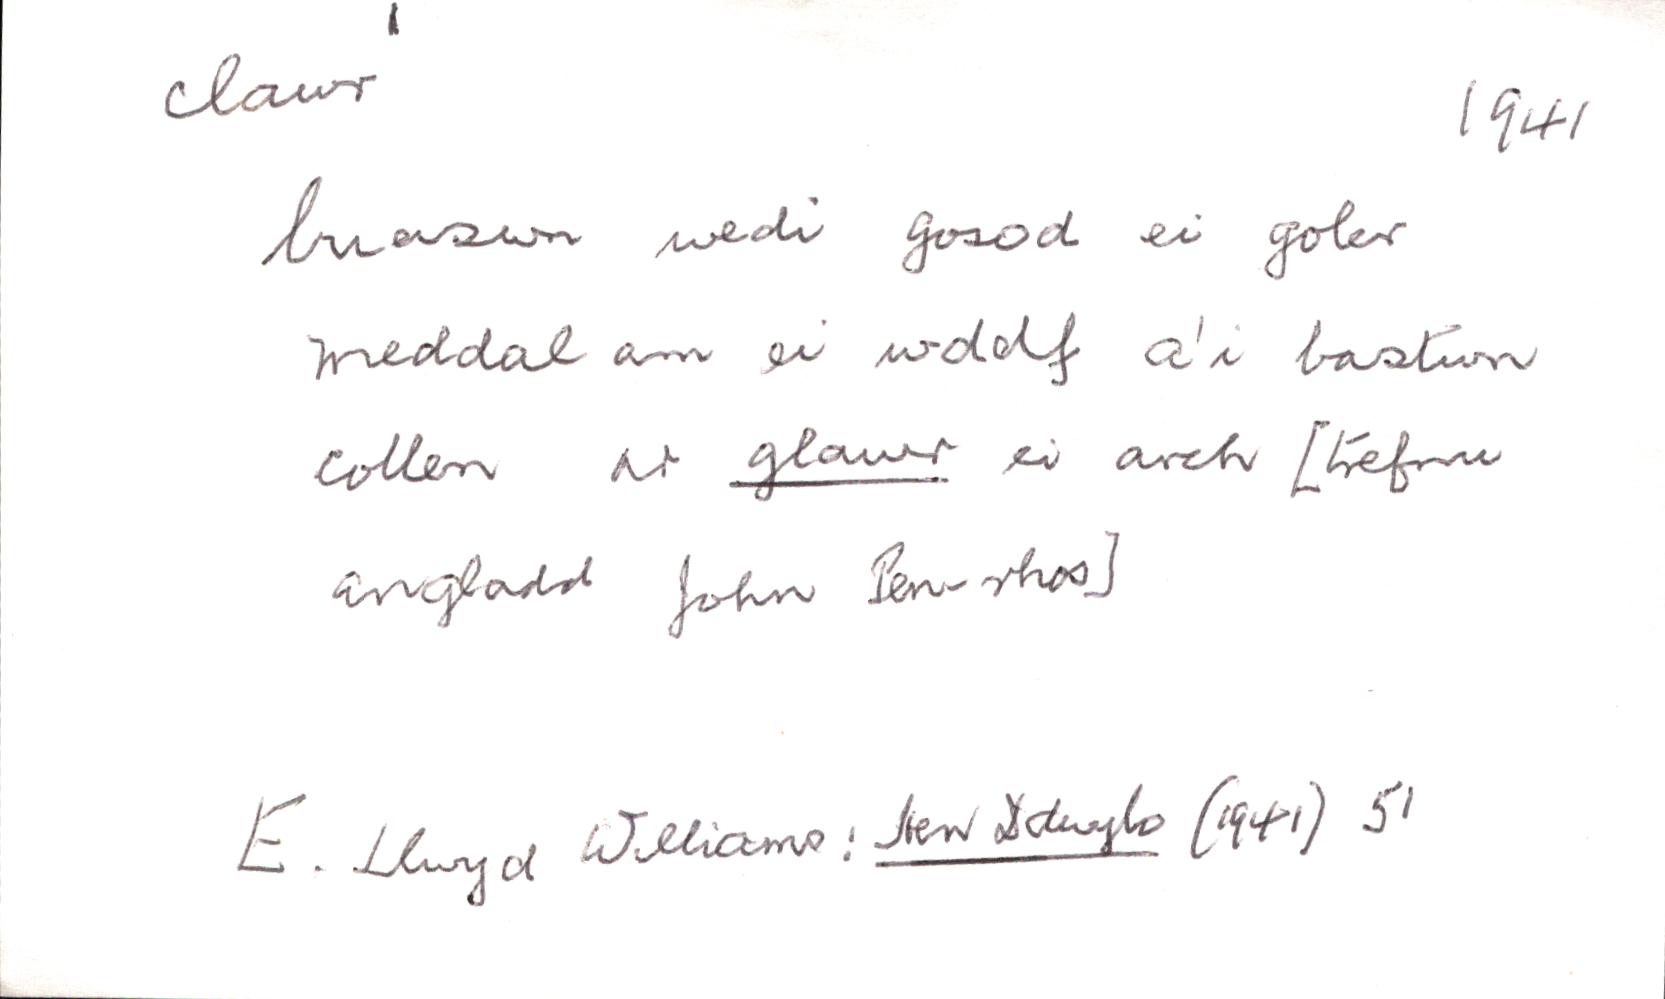 clawr¹
1941
buaswn wedi gosod ei goler
meddal am ei wddf a'i bastwn
collen ar glawr ei arch [trefnu
angladd John Pen-rhos]
E. Llwyd Williams: Hen Ddwylo (1941) 51